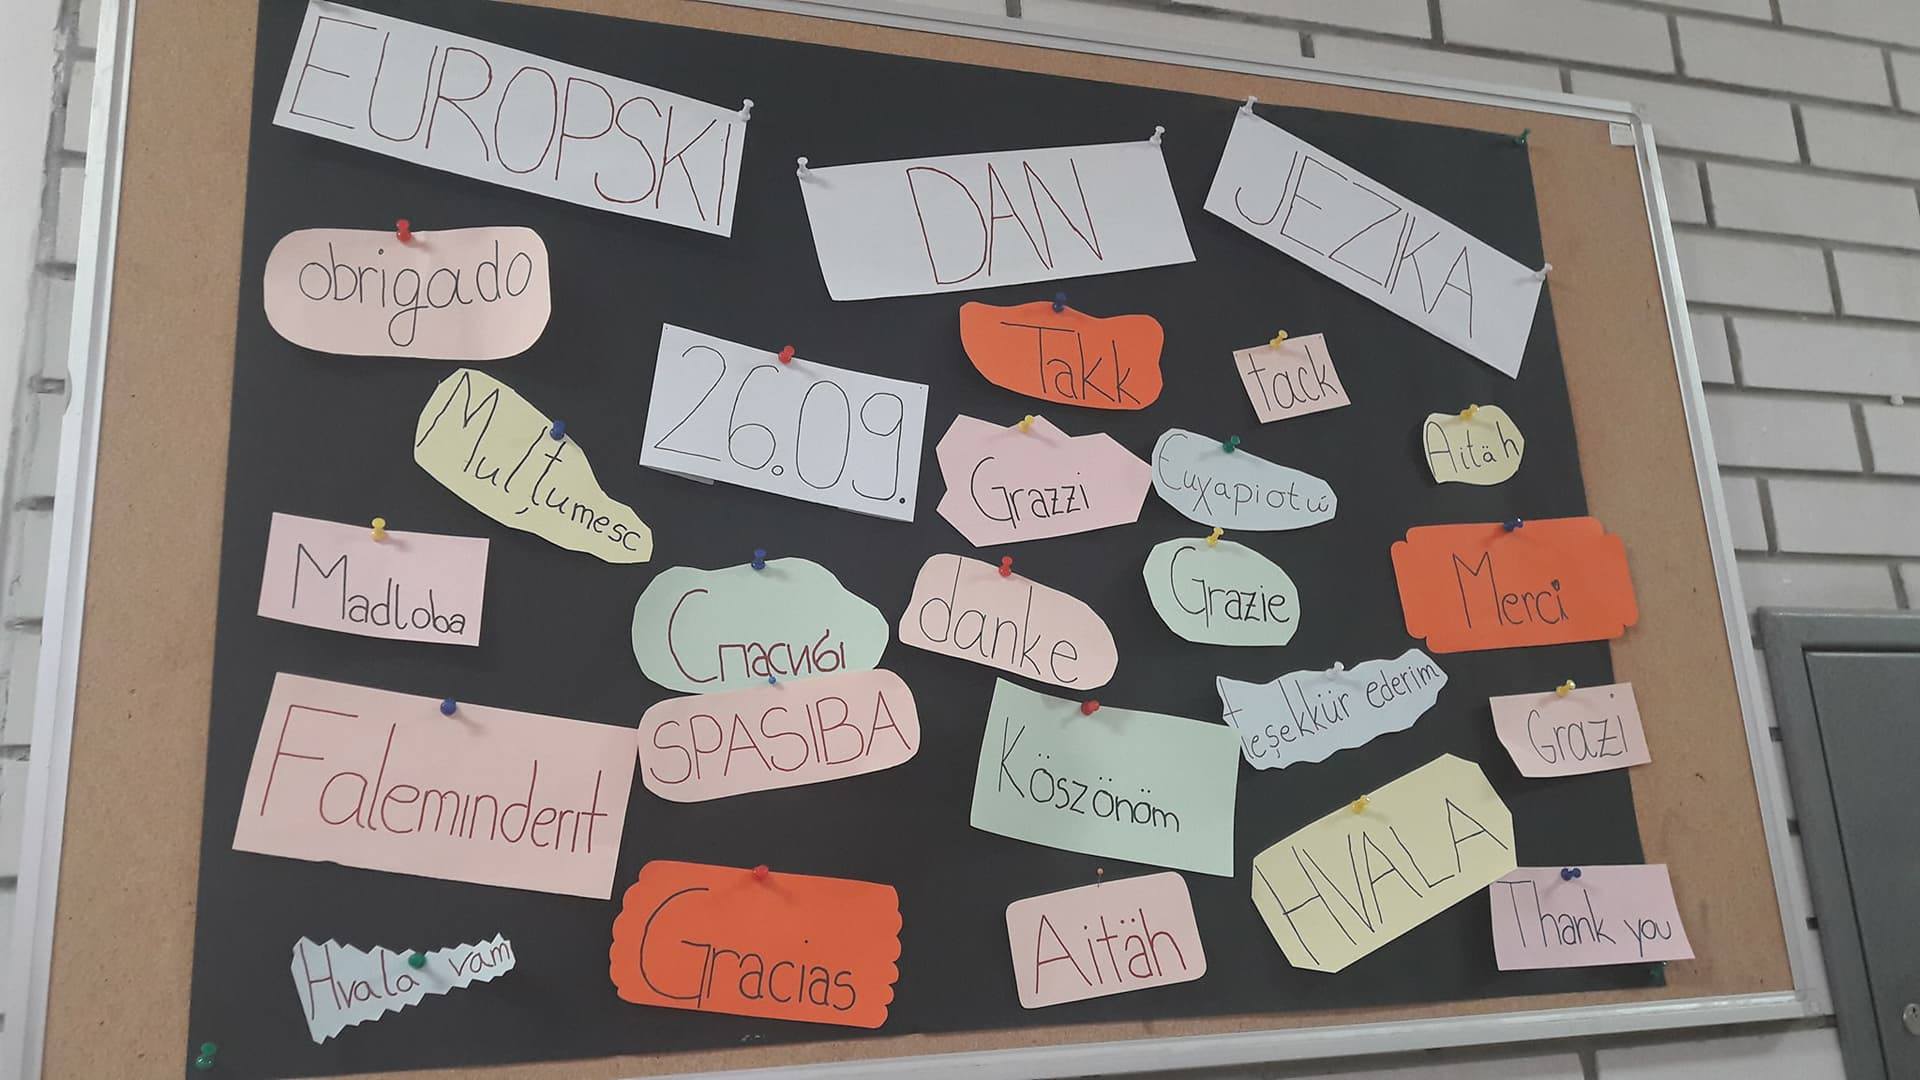 EUROPSKI
DAN
JEZIKA
obrigado
Takk
tack
26.09.
Mulțumesc
Grazzi
Euxapiotώ
Aitäh
Madloba
Спасибы
danke
Grazie
Merci
SPASIBA
Faleminderit
Köszönöm
teşekkür ederim
Grazi
HVALA
Thank you
Hvala vam
Gracias
Aitäh